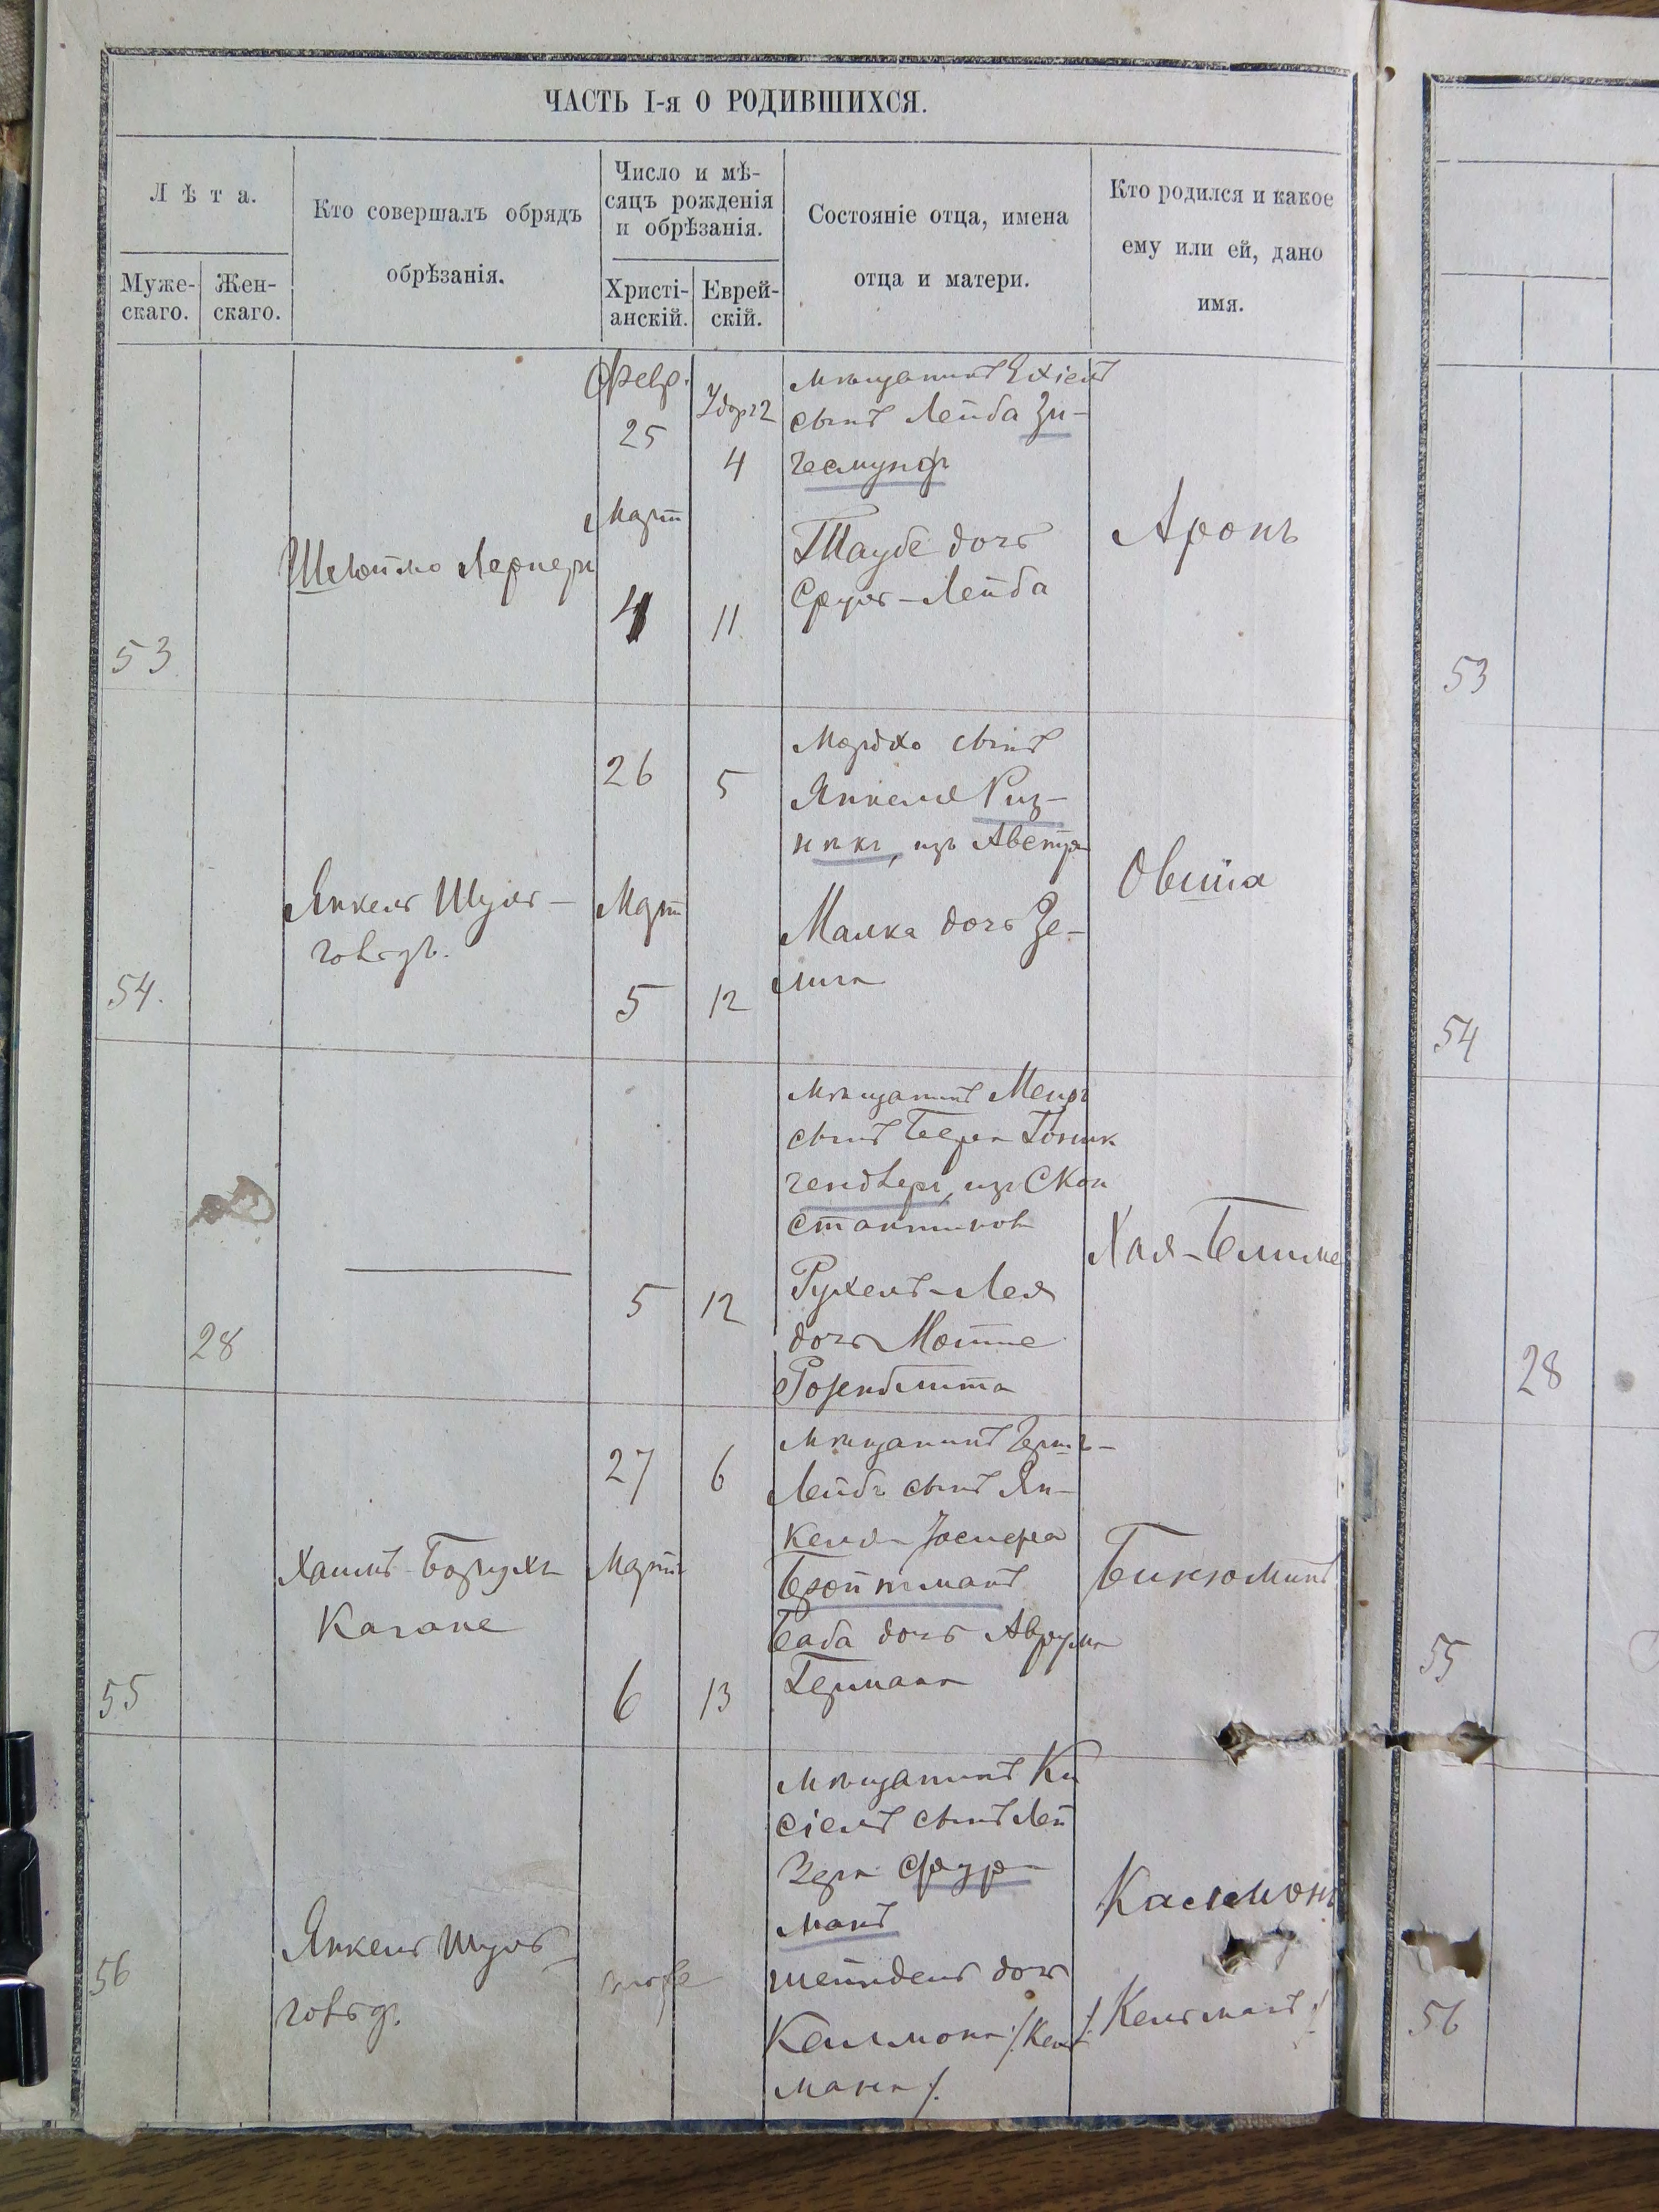 ЧАСТЬ I-я О РОДИВШИХСЯ.
Лѣта.
Муже-
скаго.
Жен-
скаго.
Кто совершалъ обрядъ
обрѣзанія.
Число и мѣ-
сяцъ рожденія
и обрѣзанія.
Христі-
анскій.
Еврей-
скій.
Состояніе отца, имена
отца и матери.
Кто родился и какое
ему или ей, дано
имя.
53
Шлоймо Лернеръ
Февр.
25
Мартъ
4
4
11
мѣщанинъ Ехіель
сынъ Лейба Зи-
гемунд
Таубе дочь
Сруль-Лейба
Аронъ
53
54.
Янкель Шуль-
26
Мартъ
5
5
12
Мордко сынъ
Янкеля Риз-
никъ, изъ Австр
Малка дочь Зе-
лига
Овшіа
54
28
5
12
мѣщанинъ Меиръ
сынъ Бера
изъ С Кон
стантинов
Рухель-Лея
дочь Мотте
Розенблита
Хая-
28
55
Хаимъ-Борухъ
Кагане
27
Мартъ
6
6
13
мѣщанинъ Гершъ-
Лейбъ сынъ Ян-
келя-Іосифа
Бройтманъ
Баба дочь Аврума
Германа
Бинюминъ
55
56
Янкель Шуль-
тоже
мѣщанинъ Ки
сіель сынъ Лей
зера Фур
манъ
шейндель дочь
Калмона /: Кель
мана :/
Калмонъ
/: Кельманъ :/
56